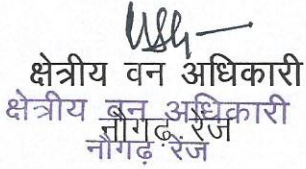 क्षेत्रीय वन अधिकारी
क्षेत्रीय वन अधिकारी
नौगढ़ रेंज
नौगढ़ रेंज